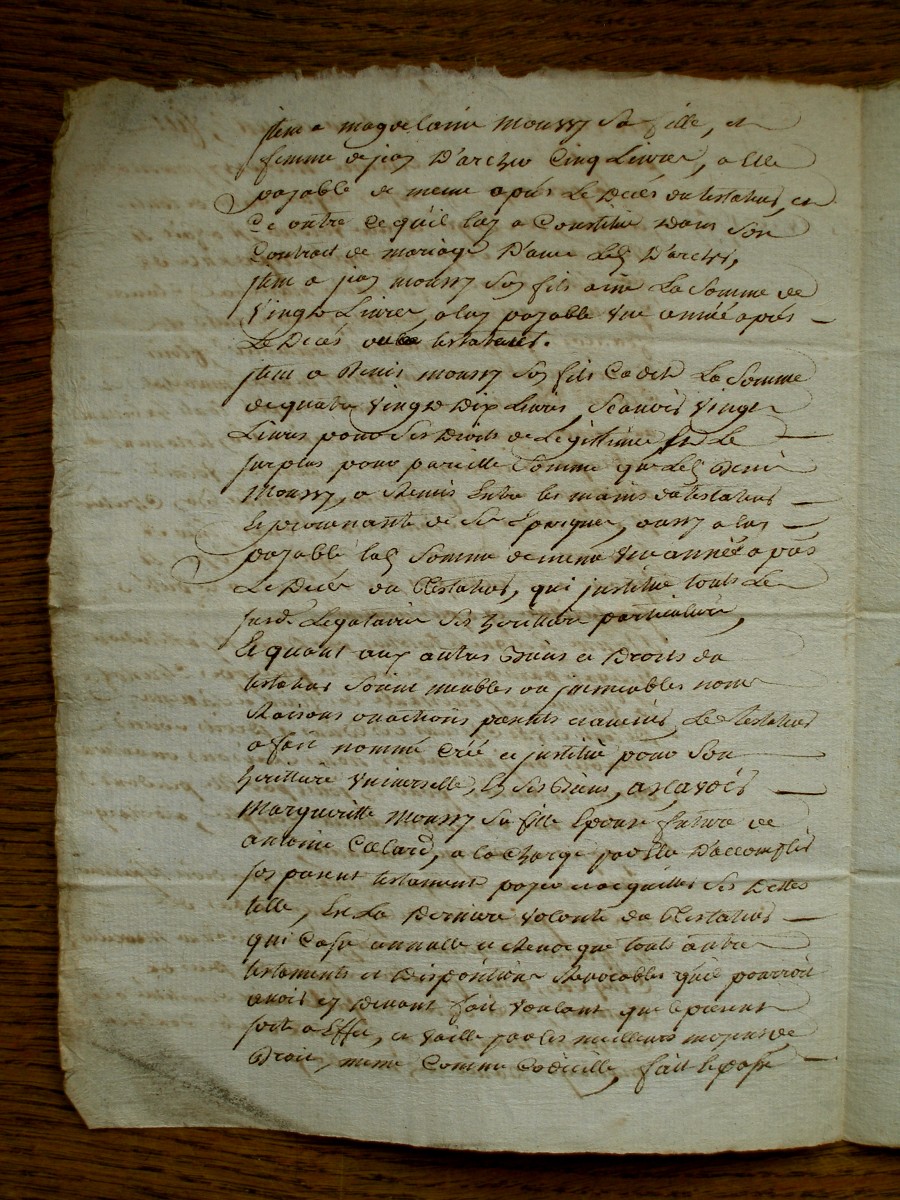 jtem a magdelaine moussy sa fille, et
femme de jean D'archer Cinq Livres, a Elle
payable de meme après Le Decés du testateur, et
ce outre ce qu'il luy a Constitué Dans son
Contract de mariage D'avec Led D'archer,
jtem a jean moussy son fils ainé La Somme de
vingt Livres, a luy payable une année après
Le Decés du testateur.
jtem a Denis moussy son fils Cadet La Somme
de quatre vingt Dix Livres, Scavoir vingt
Livres pour ses Droits de Legittime Et Le
surplus pour pareille Somme que Led Denis
moussy, a Remis Entre les mains du testateur
Le provenant de Ses Epargnes, aussy a luy
payable lad Somme de meme une année après
Le Decés du testateur, qui justitue touts Le
susd. Legataires ses heritiers particuliers,
Et quant aux autres Biens et Droits du
testateur Soient meubles ou jmmeubles noms
Raisons ou actions presents et avenirs, Le testateur
a fait nommé créé et justitué pour son
herittiere vniverselle, En ses Biens, a scavoir
Margueritte moussy sa fille Epouse future de
antoine Colard, a la Charge par Elle D'accomplir
son present testament payer et acquitter ses Dettes
telle, Est La Derniere volonté du testateur
qui Casse annulle et Revoque touts autres
testaments et Dispositions Revocables qu'il pourroit
avoir cy Devant fait voulant que le present
sorte a Effet, et vaille par les meilleurs moyens de
Droit, meme Comme Codicille, fait le passé